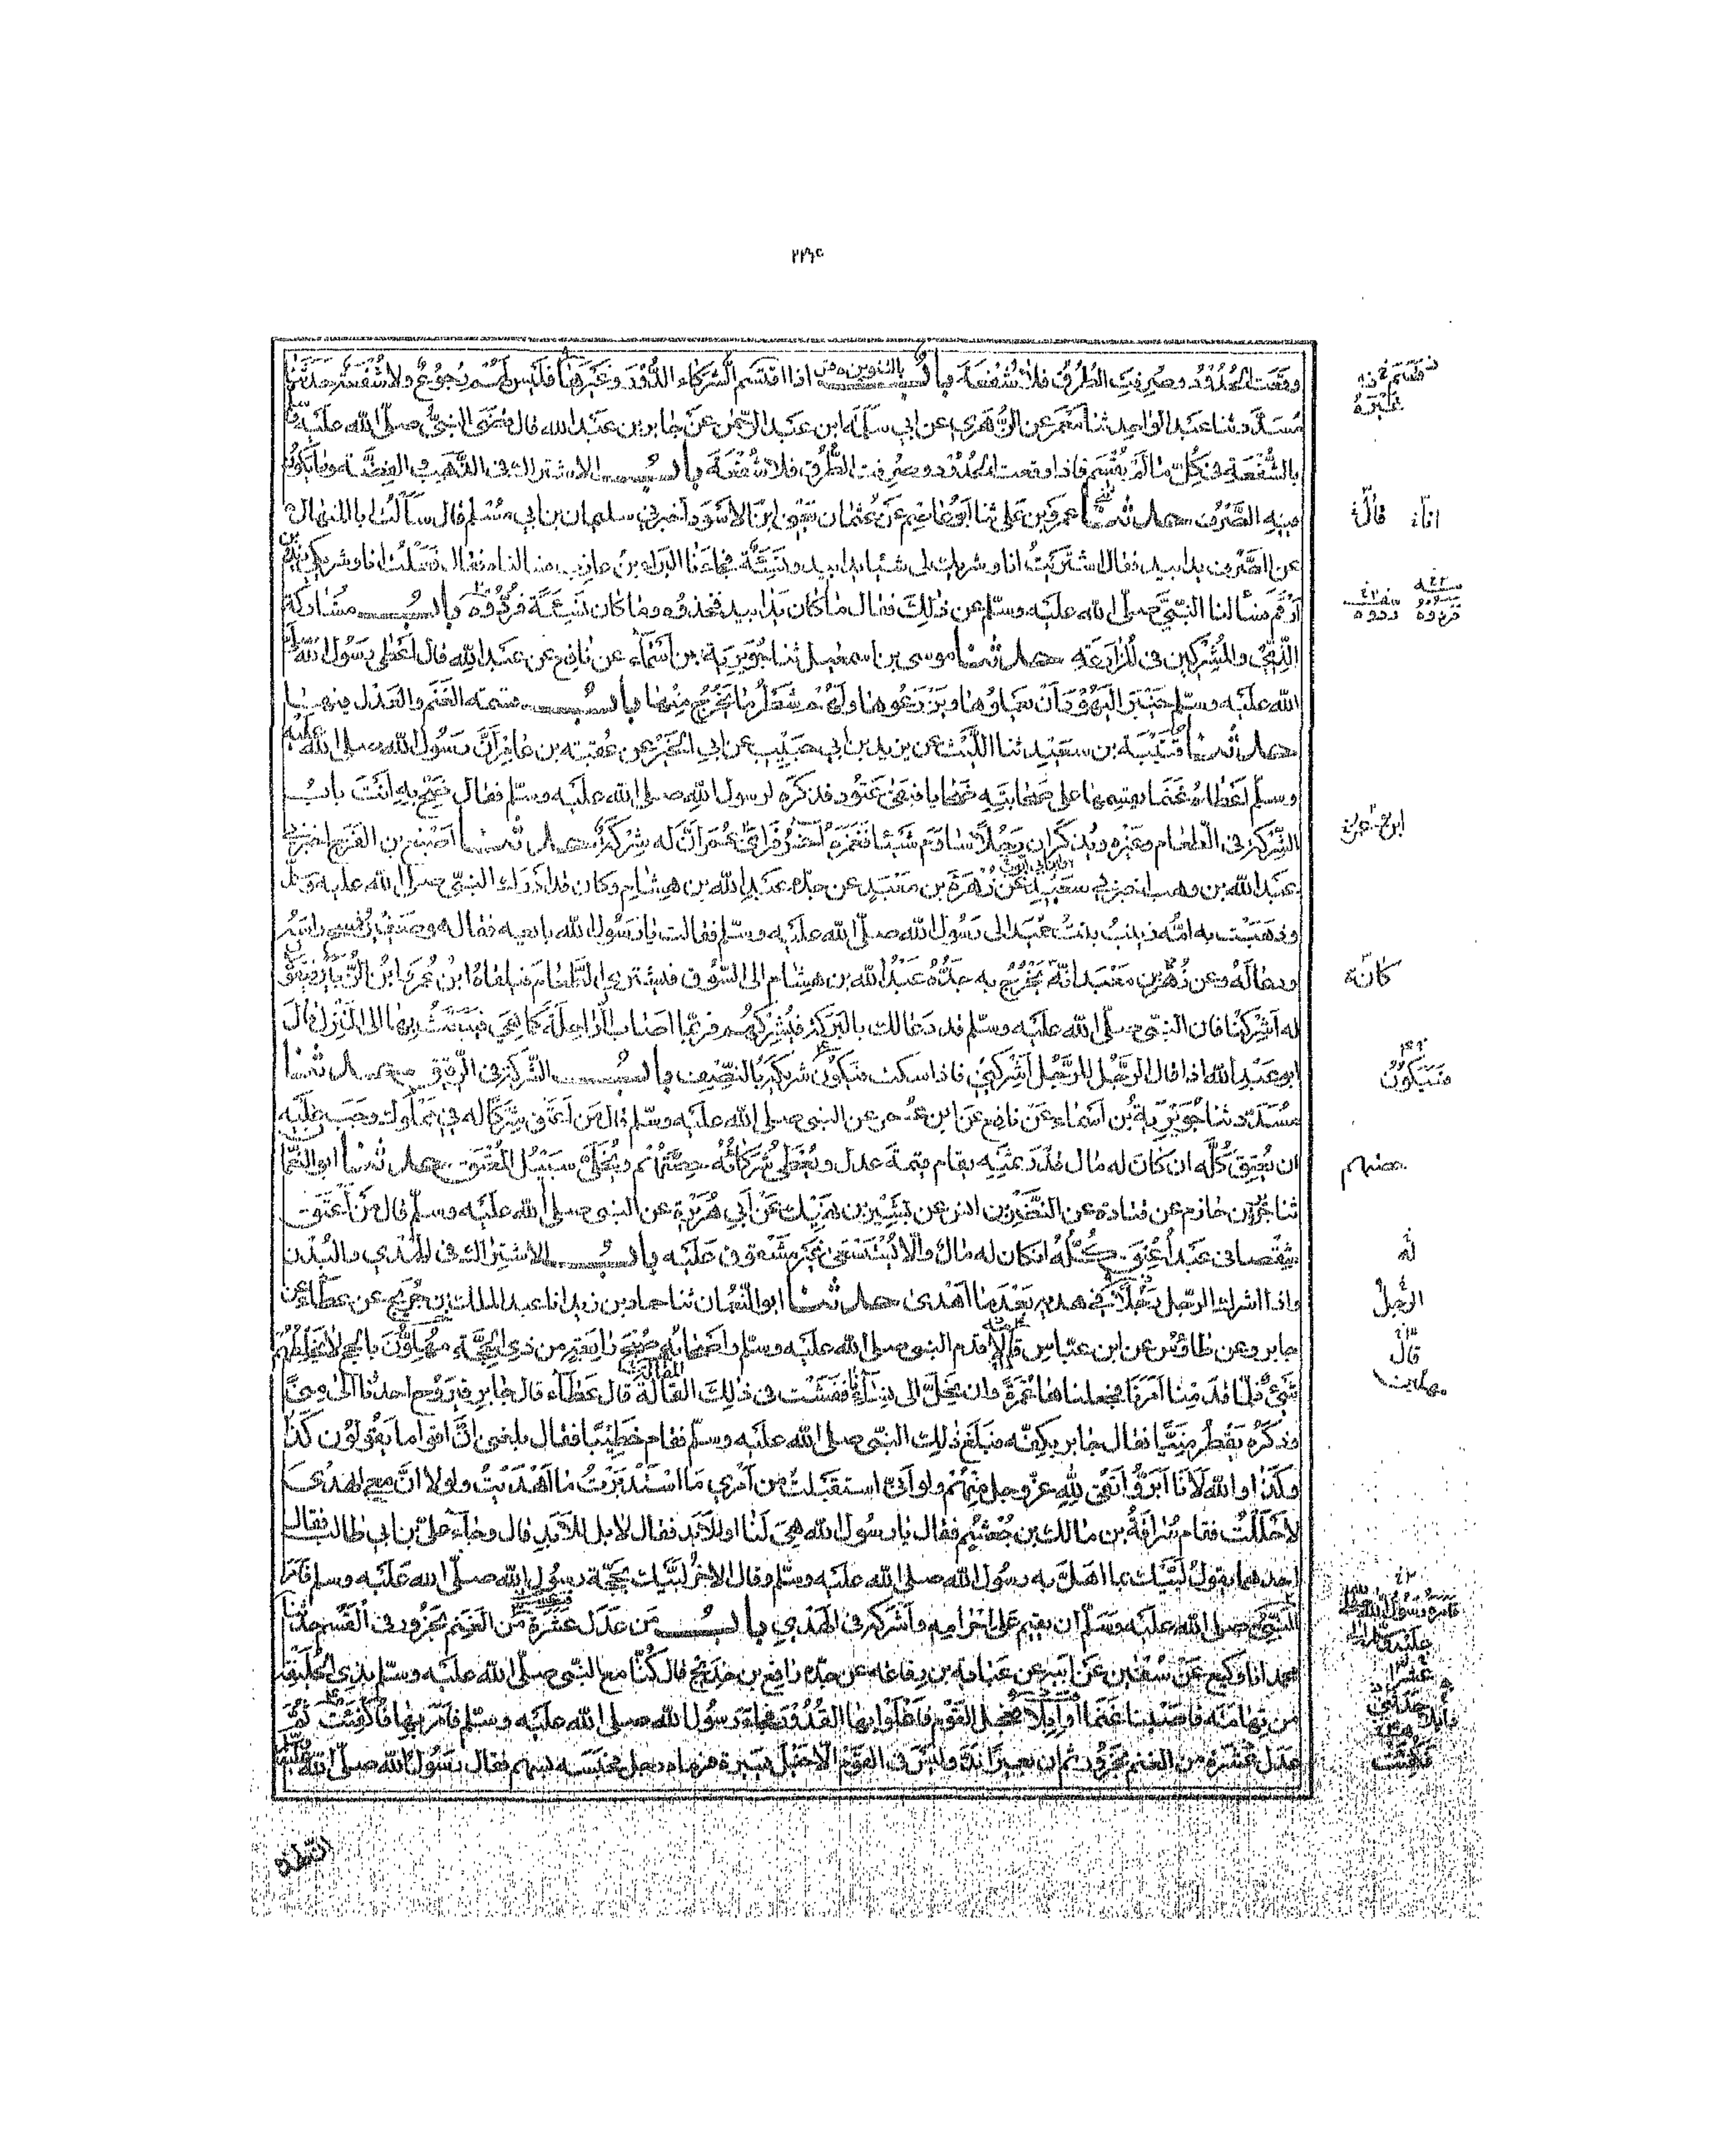 وقعت الحدود وصرفت الطرق فلا شفعة باب بالتنوين اذا اقتسم الشركاء الدور وغيرها فليس لهم رجوع ولا شفعة حدثنا
مسدد ثنا عبد الواحد ثنا معمر عن الزهري عن ابي سلمة ابن عبد الرحمن عن جابر بن عبد الله قال قضى النبي صلى الله عليه
بالشفعة في كل ما لم يقسم فاذا وقعت الحدود وصرفت الطرق فلا شفعة باب الاشتراك في الذهب والفضة وما يكون
فيه الصرف حدثنا عمرو بن علي ثنا ابو عاصم عن عثمان يعني ابن الاسود اخبرني سليمان بن ابي مسلم قال سألت ابا المنهال
عن الصرف يدا بيد فقال اشتريت انا وشريك لي شيئا يدا بيد ونسيئة فجاءنا البراء بن عازب فسألناه فقال فعلت انا وشريكي زيد بن
ارقم فسألنا النبي صلى الله عليه وسلم عن ذلك فقال ما كان يدا بيد فخذوه وما كان نسيئة فردوه باب مشاركة
الذمي والمشركين في المزارعة حدثنا موسى بن اسمعيل ثنا جويرية بن اسماء عن نافع عن عبد الله قال اعطى رسول الله
الله عليه وسلم خيبر اليهود ان يعملوها ويزرعوها ولهم شطر ما يخرج منها باب قسمة الغنم والعدل فيها
حدثنا قتيبة بن سعيد ثنا الليث عن يزيد بن ابي حبيب عن ابي الخير عن عقبة بن عامر ان رسول الله صلى الله عليه
وسلم اعطاه غنما يقسمها على صحابته ضحايا فبقي عتود فذكره لرسول الله صلى الله عليه وسلم فقال ضح به انت باب
الشركة في الطعام وغيره ويذكر ان رجلا ساوم شيئا فغمزه اخر فراى عمر ان له شركة حدثنا اصبغ بن الفرج اخبرني
عبد الله بن وهب اخبرني سعيد عن زهرة بن معبد عن جده عبد الله بن هشام وكان قد ادرك النبي صلى الله عليه وسلم
وذهبت به امه زينب بنت حميد الى رسول الله صلى الله عليه وسلم فقالت يا رسول الله بايعه فقال هو صغير فمسح راسه
ودعا له وعن زهرة بن معبد انه يخرج به جده عبد الله بن هشام الى السوق فيشتري الطعام فيلقاه ابن عمر وابن الزبير فيقولان
له اشركنا فان النبي صلى الله عليه وسلم قد دعا لك بالبركة فيشركهم فربما اصاب الراحلة كما هي فيبعث بها الى المنزل قال
ابو عبد الله اذا قال الرجل للرجل اشركني فاذا سكت فيكون شريكه بالنصف باب الشركة في الرقيق حدثنا
مسدد ثنا جويرية بن اسماء عن نافع عن ابن عمر عن النبي صلى الله عليه وسلم قال من اعتق شركا له في مملوك وجب عليه
ان يعتق كله ان كان له مال قدر ثمنه يقام قيمة عدل ويعطى شركاؤه حصتهم ويخلى سبيل المعتق حدثنا ابو النعمان
ثنا جرير بن حازم عن قتادة عن النضر بن انس عن بشير بن نهيك عن ابي هريرة عن النبي صلى الله عليه وسلم قال من اعتق
شقصا في عبد اعتق كله ان كان له مال والا يستسعى غير مشقوق عليه باب الاشتراك في الهدي والبدن
واذا اشرك الرجل رجلا في هديه بعد ما اهدى حدثنا ابو النعمان ثنا حماد بن زيد انا عبد الملك بن جريج عن عطاء عن
جابر وعن طاوس عن ابن عباس قالا قدم النبي صلى الله عليه وسلم واصحابه صبح رابعة من ذي الحجة مهلون بالحج لا يخلطهم
شيء فلما قدمنا امرنا فجعلناها عمرة وان نحل الى نسائنا ففشت في ذلك القالة قال عطاء قال جابر فيروح احدنا الى منى
وذكره يقطر منيا فقال جابر بكفه فبلغ ذلك النبي صلى الله عليه وسلم فقام خطيبا فقال بلغني ان اقواما يقولون كذا
وكذا والله لانا ابر واتقى لله عز وجل منهم ولو اني استقبلت من امري ما استدبرت ما اهديت ولولا ان معي الهدي
لاحللت فقام سراقة بن مالك بن جعشم فقال يا رسول الله هي لنا او للابد فقال لا بل للابد قال وجاء علي بن ابي طالب فقال
احدهما يقول لبيك بما اهل به رسول الله صلى الله عليه وسلم وقال الاخر لبيك بحجة رسول الله صلى الله عليه وسلم فامر
النبي صلى الله عليه وسلم ان يقيم على احرامه واشركه في الهدي باب من عدل عشرة من الغنم بجزور في القسم حدثنا
محمد انا وكيع عن سفين عن ابيه عن عباية بن رفاعة عن جده رافع بن خديج قال كنا مع النبي صلى الله عليه وسلم بذي الحليفة
من تهامة فاصبنا غنما او ابلا فعجل القوم فاغلوا بها القدور فجاء رسول الله صلى الله عليه وسلم فامر بها فاكفئت ثم
عدل عشرة من الغنم بجزور ثم ان بعيرا ند وليس في القوم الا خيل يسيرة فرماه رجل فحبسه بسهم فقال رسول الله صلى الله عليه
انا قال
كانه
فيكون
له
الرجل
قال